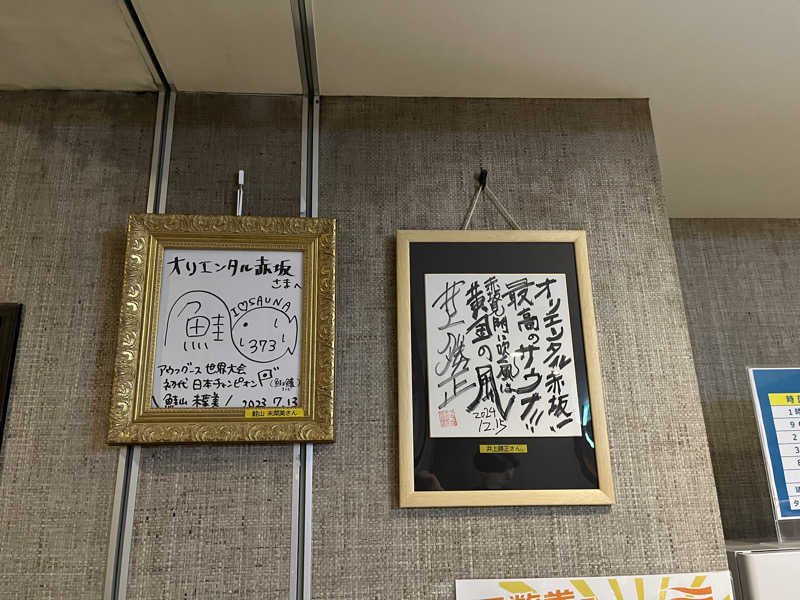 オリエンタル赤坂
さまへ
鮭
I♡SAUNA
373
アウフグース世界大会
初代 日本チャンピオン
鮭山 未菜美/ 2023.7.13
鮭山 未菜美さん
オリエンタル赤坂!
最高のサウナ!!
赤坂見附に吹く風は
黄金の風
井上勝正
2024
12.15
井上勝正さん